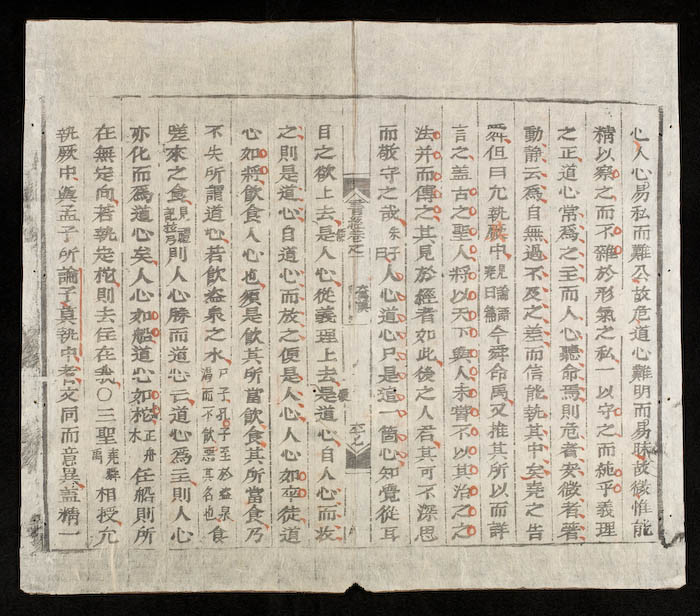 心人心易私而難公故危道心難明而易昧故微惟能
精以察之而不雜於形氣之私一以守之而純乎義理
之正道心常爲之主而人心聽命焉則危者安微者著
動静云爲自無過不及之差而信能執其中矣堯之告
舜但曰允執厥中見論語堯曰篇今舜命禹又推其所以而詳
言之盖古之聖人將以天下與人未嘗不以其治之之
法并而傳之其見於經者如此後之人君其可不深思
而敬守之哉朱子曰人心道心只是這一箇心知覺從耳
目之欲上去是人心從義理上去是道心自人心而收
之則是道心自道心而放之便是人心人心如卒徒道
心如將飲食人心也須是飲其所當飲食其所當食乃
不失所謂道心若飲盗泉之水尸子孔子至於盗泉渴而不飲惡其名也食
嗟來之食見禮記檀弓則人心勝而道心亡道心爲主則人心
亦化而爲道心矣人心如船道心如柁正舟木任船則所
在無定向若執定柁則去住在我〇三聖堯舜禹相授允
執厥中與孟子所論子莫執中者文同而意異盖精一